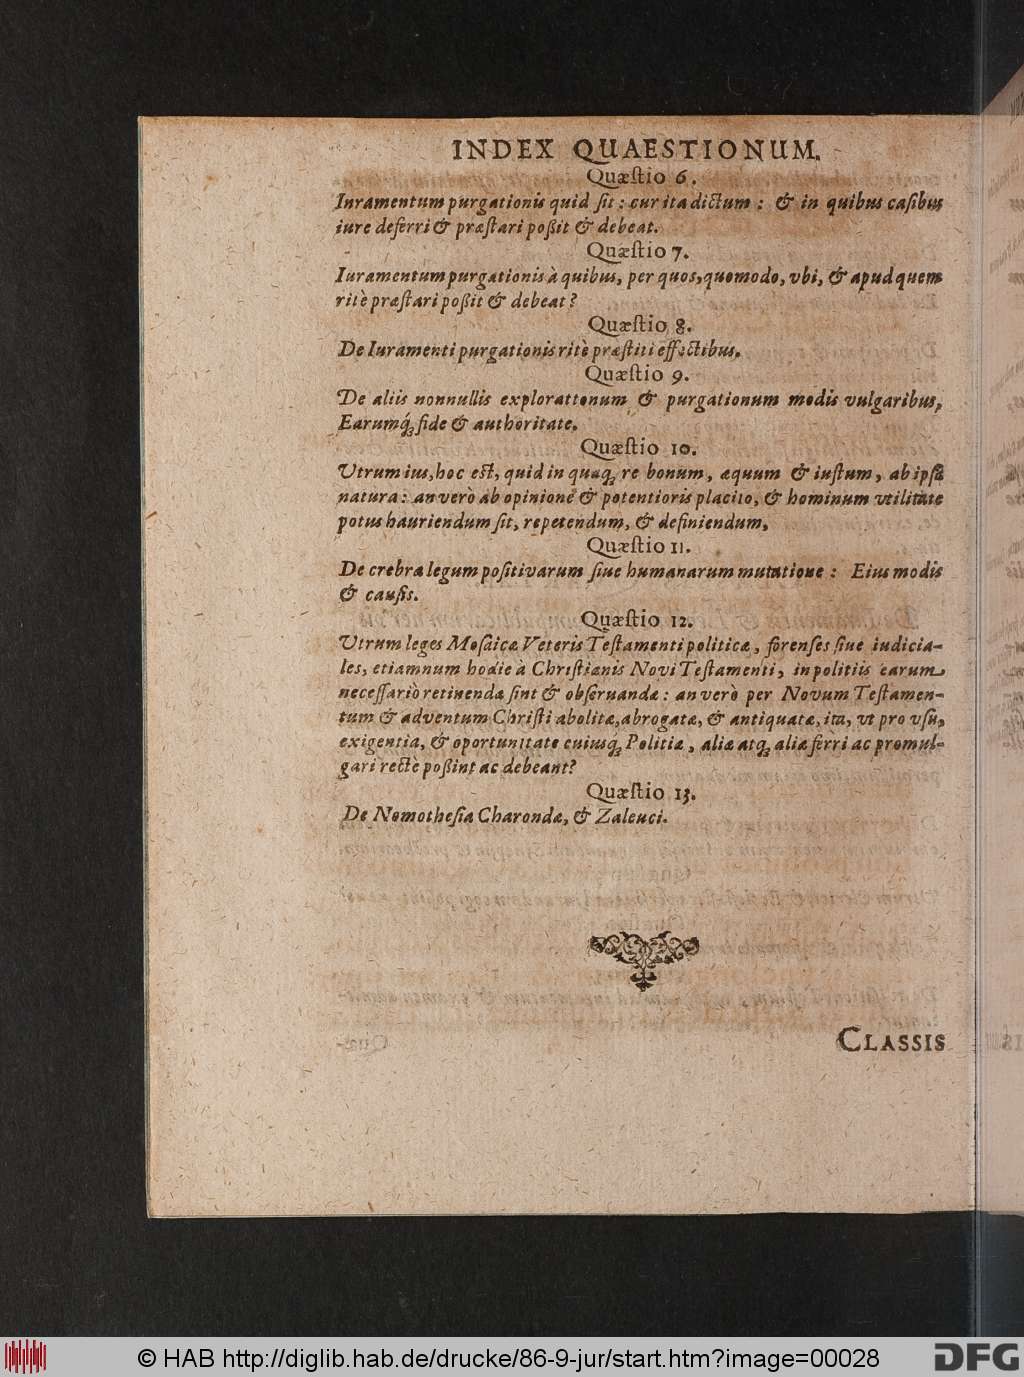 INDEX QUAESTIONUM.
Quæſtio 6.
Iuramentum purgationis quid ſit: cur ita dictum: & in quibus caſibus
iure deferri & præſtari poßit & debeat.
Quæſtio 7.
Iuramentum purgationis à quibus, per quos, quomodo, vbi, & apud quem
ritè præſtari poßit & debeat?
Quæſtio 8.
De Iuramenti purgationis ritè præſtiti effectibus.
Quæſtio 9.
De aliis nonnullis explorationum & purgationum modis vulgaribus,
Earumq́ꝫ fide & authoritate.
Quæſtio 10.
Vtrum ius, hoc eſt, quid in quaqꝫ re bonum, æquum & iuſtum, ab ipſâ
natura: an verò ab opinione & potentioris placito, & hominum vtilitate
potus hauriendum ſit, repetendum, & definiendum,
Quæſtio 11.
De crebra legum poſitivarum ſiue humanarum mutatione: Eius modis
& cauſis.
Quæſtio 12.
Vtrum leges Moſaicæ Veteris Teſtamenti politicæ, forenſes ſiue iudicia-
les, etiamnum hodie à Chriſtianis Novi Teſtamenti, in politiis earum
neceſſariò retinendæ ſint & obſeruandæ: an verò per Novum Teſtamen-
tum & adventum Chriſti abolitæ, abrogatæ, & antiquatæ, ita, vt pro vſu,
exigentia, & oportunitate cuiusq́ꝫ Politiæ, aliæ atqꝫ aliæ ferri ac promul-
gari rectè poßint ac debeant?
Quæſtio 13.
De Nomotheſia Charondæ, & Zaleuci.
CLASSIS
© HAB http://diglib.hab.de/drucke/86-9-jur/start.htm?image=00028
DFG